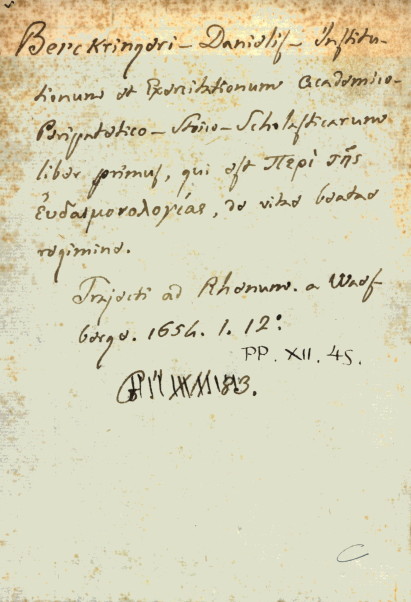 Berckringeri - Danielis - Institu-
tionum et Exercitationum Academico-
Peripatetico - Stoico - Scholasticarum
liber primus, qui est Περὶ τῆς
ἐυδαιμονολογίας, de vitae beatae
regimine.
Trajecti ad Rhenum. a Waes-
berge. 1654. 1. 12:
PP. XII. 45.
C